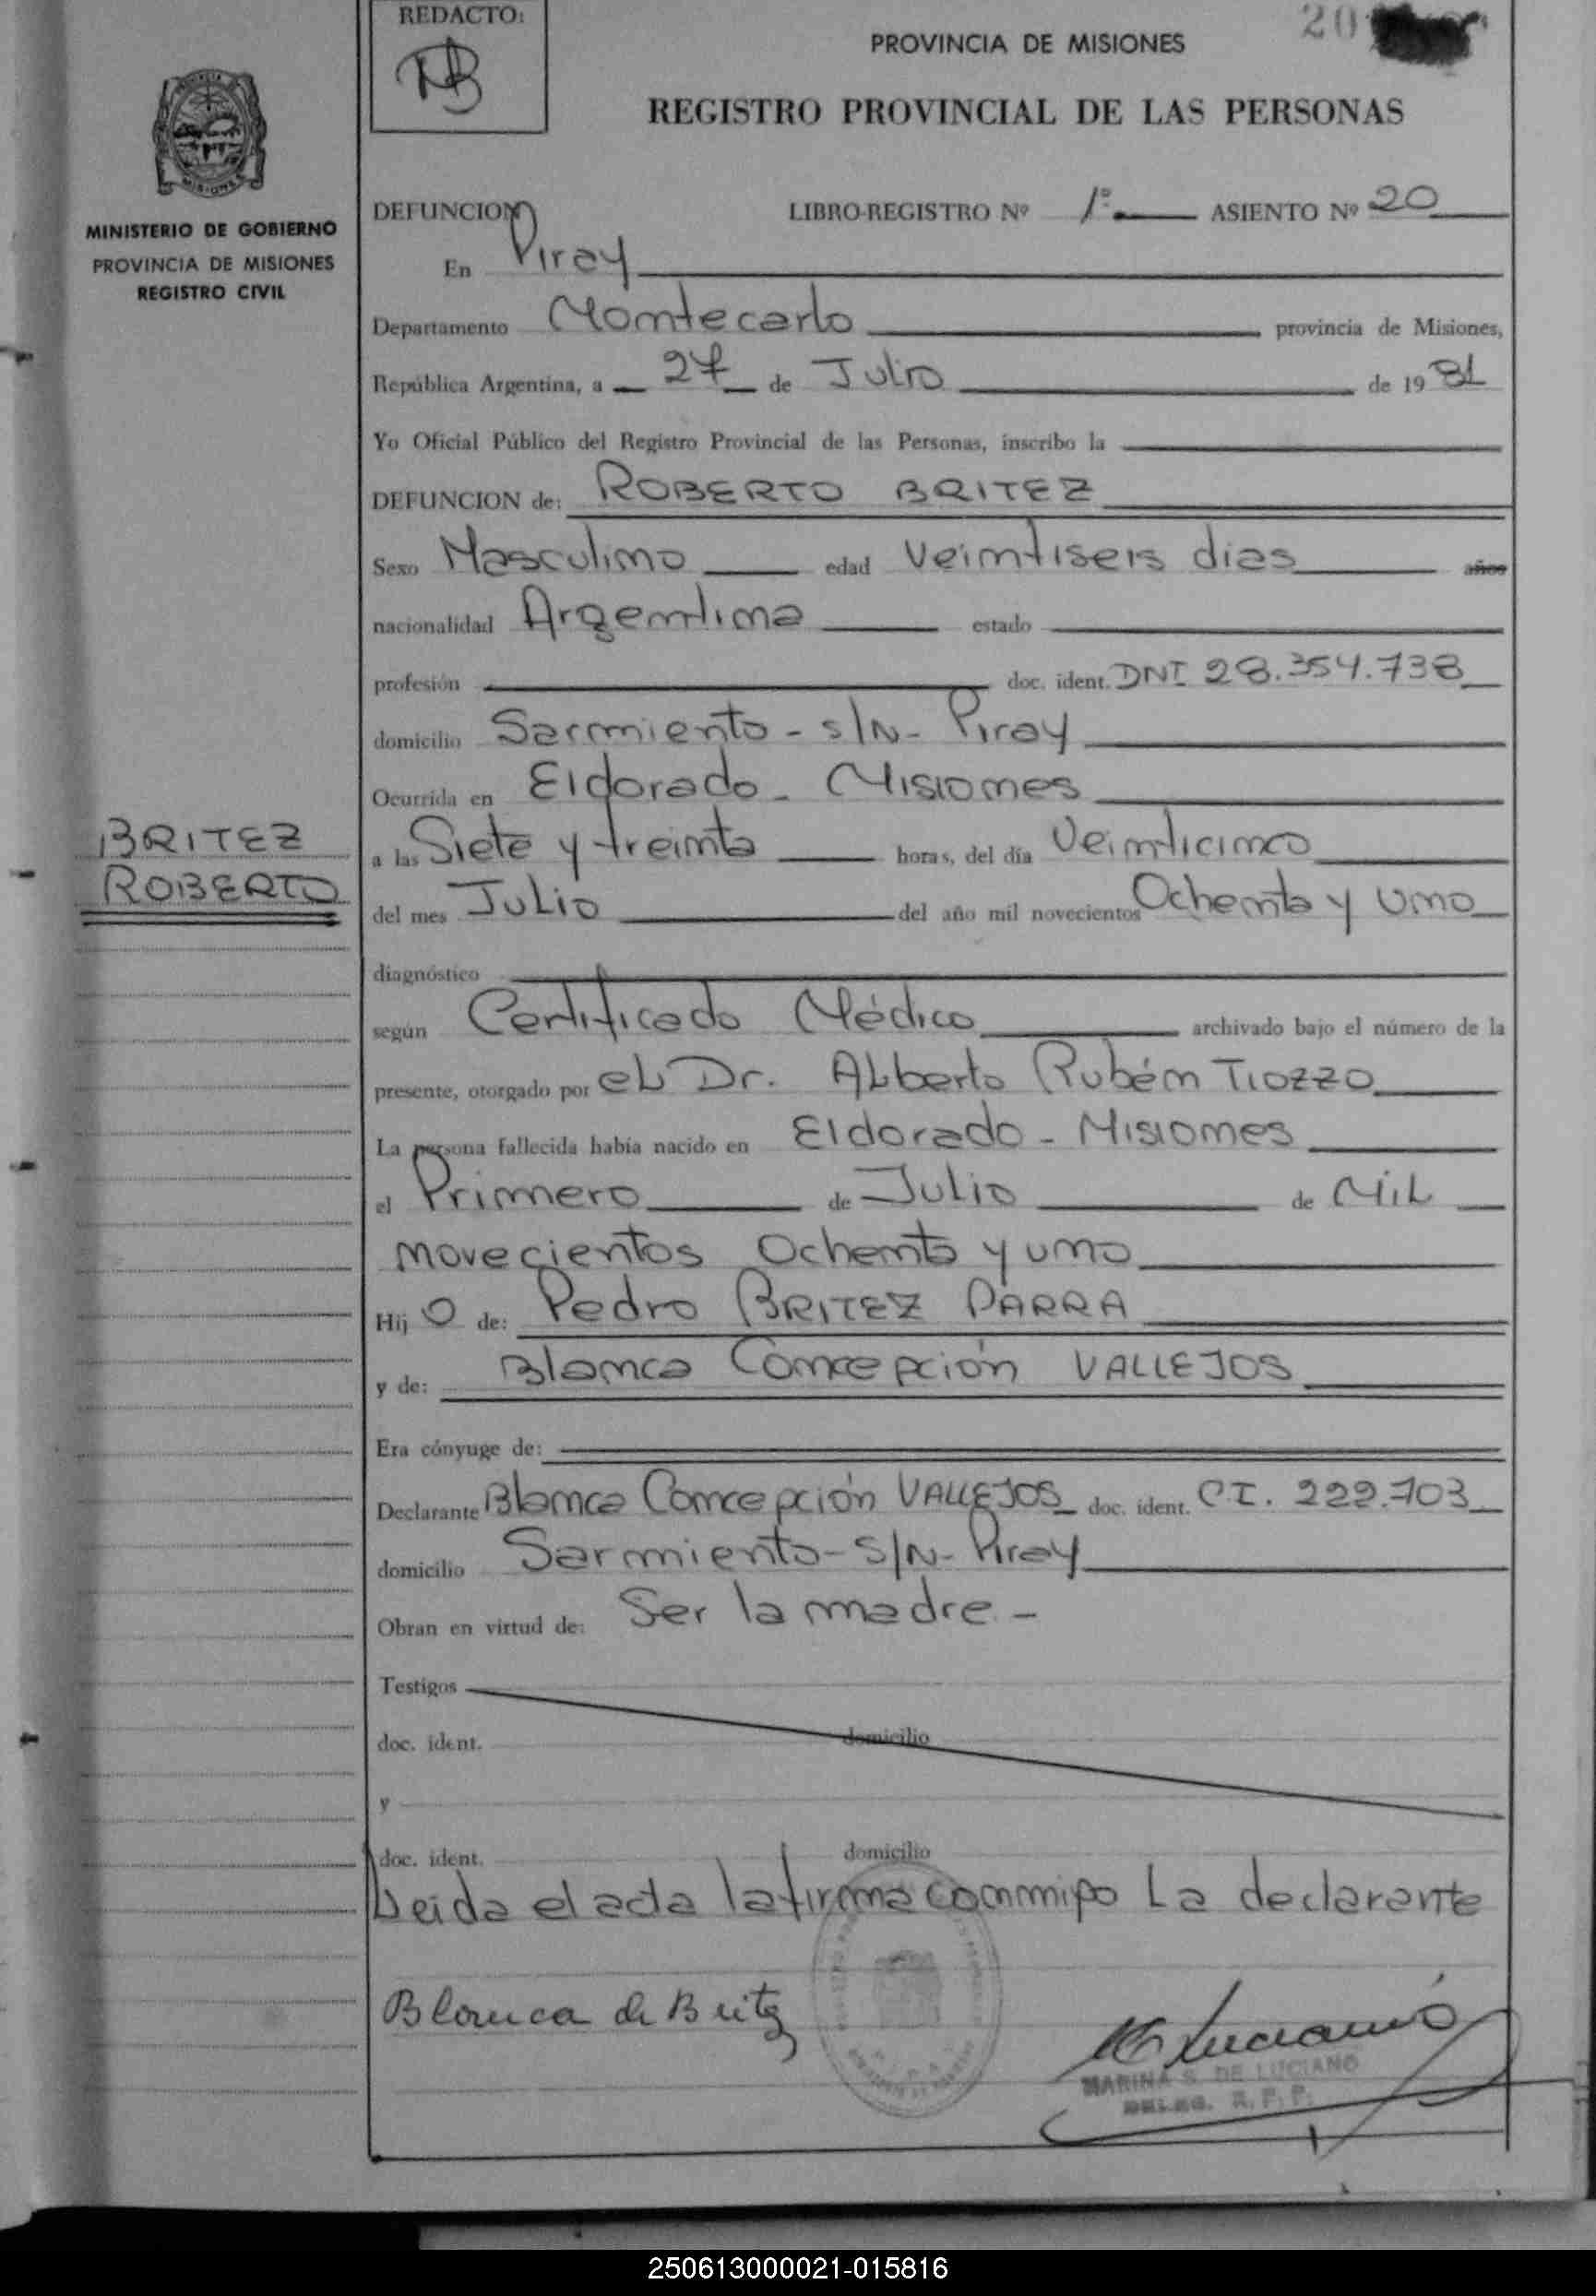 REDACTO:
PROVINCIA DE MISIONES
20
REGISTRO PROVINCIAL DE LAS PERSONAS
MISIONES
MINISTERIO DE GOBIERNO
PROVINCIA DE MISIONES
REGISTRO CIVIL
DEFUNCION LIBRO-REGISTRO Nº 1º ASIENTO Nº 20
En Piray
Departamento Montecarlo provincia de Misiones,
República Argentina, a 27 de Julio de 19 81
Yo Oficial Público del Registro Provincial de las Personas, inscribo la
DEFUNCION de: ROBERTO BRITEZ
Sexo Masculino edad Veintiseis dias años
nacionalidad Argentina estado
profesión doc. ident. DNI 28.354.738
domicilio Sarmiento - S/N - Piray
Ocurrida en Eldorado - Misiones
BRITEZ
ROBERTO
a las Siete y treinta horas, del día Veinticinco
del mes Julio del año mil novecientos Ochenta y uno
diagnóstico
según Certificado Médico archivado bajo el número de la
presente, otorgado por el Dr. Alberto Rubén Tiozzo
La persona fallecida había nacido en Eldorado - Misiones
el Primero de Julio de Mil
novecientos Ochenta y uno
Hij o de: Pedro BRITEZ PARRA
y de: Blanca Concepción VALLEJOS
Era cónyuge de:
Declarante Blanca Concepción VALLEJOS doc. ident. C.I. 222.703
domicilio Sarmiento - S/N - Piray
Obran en virtud de: Ser la madre -
Testigos
doc. ident. domicilio
y
doc. ident. domicilio
Leida el acta la firma conmigo La declarante
Blanca de Britez
MARINA S. DE LUCIANO
DELEG. R. P. P.
250613000021-015816